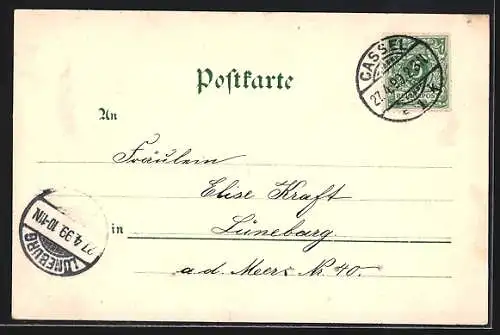 Postkarte
CASSEL
27.4.99.
An
Fräulein
Elise Kraft
in Lüneburg
a. d. Meers No. 40.
LÜNEBURG
27.4.99.10-11N.